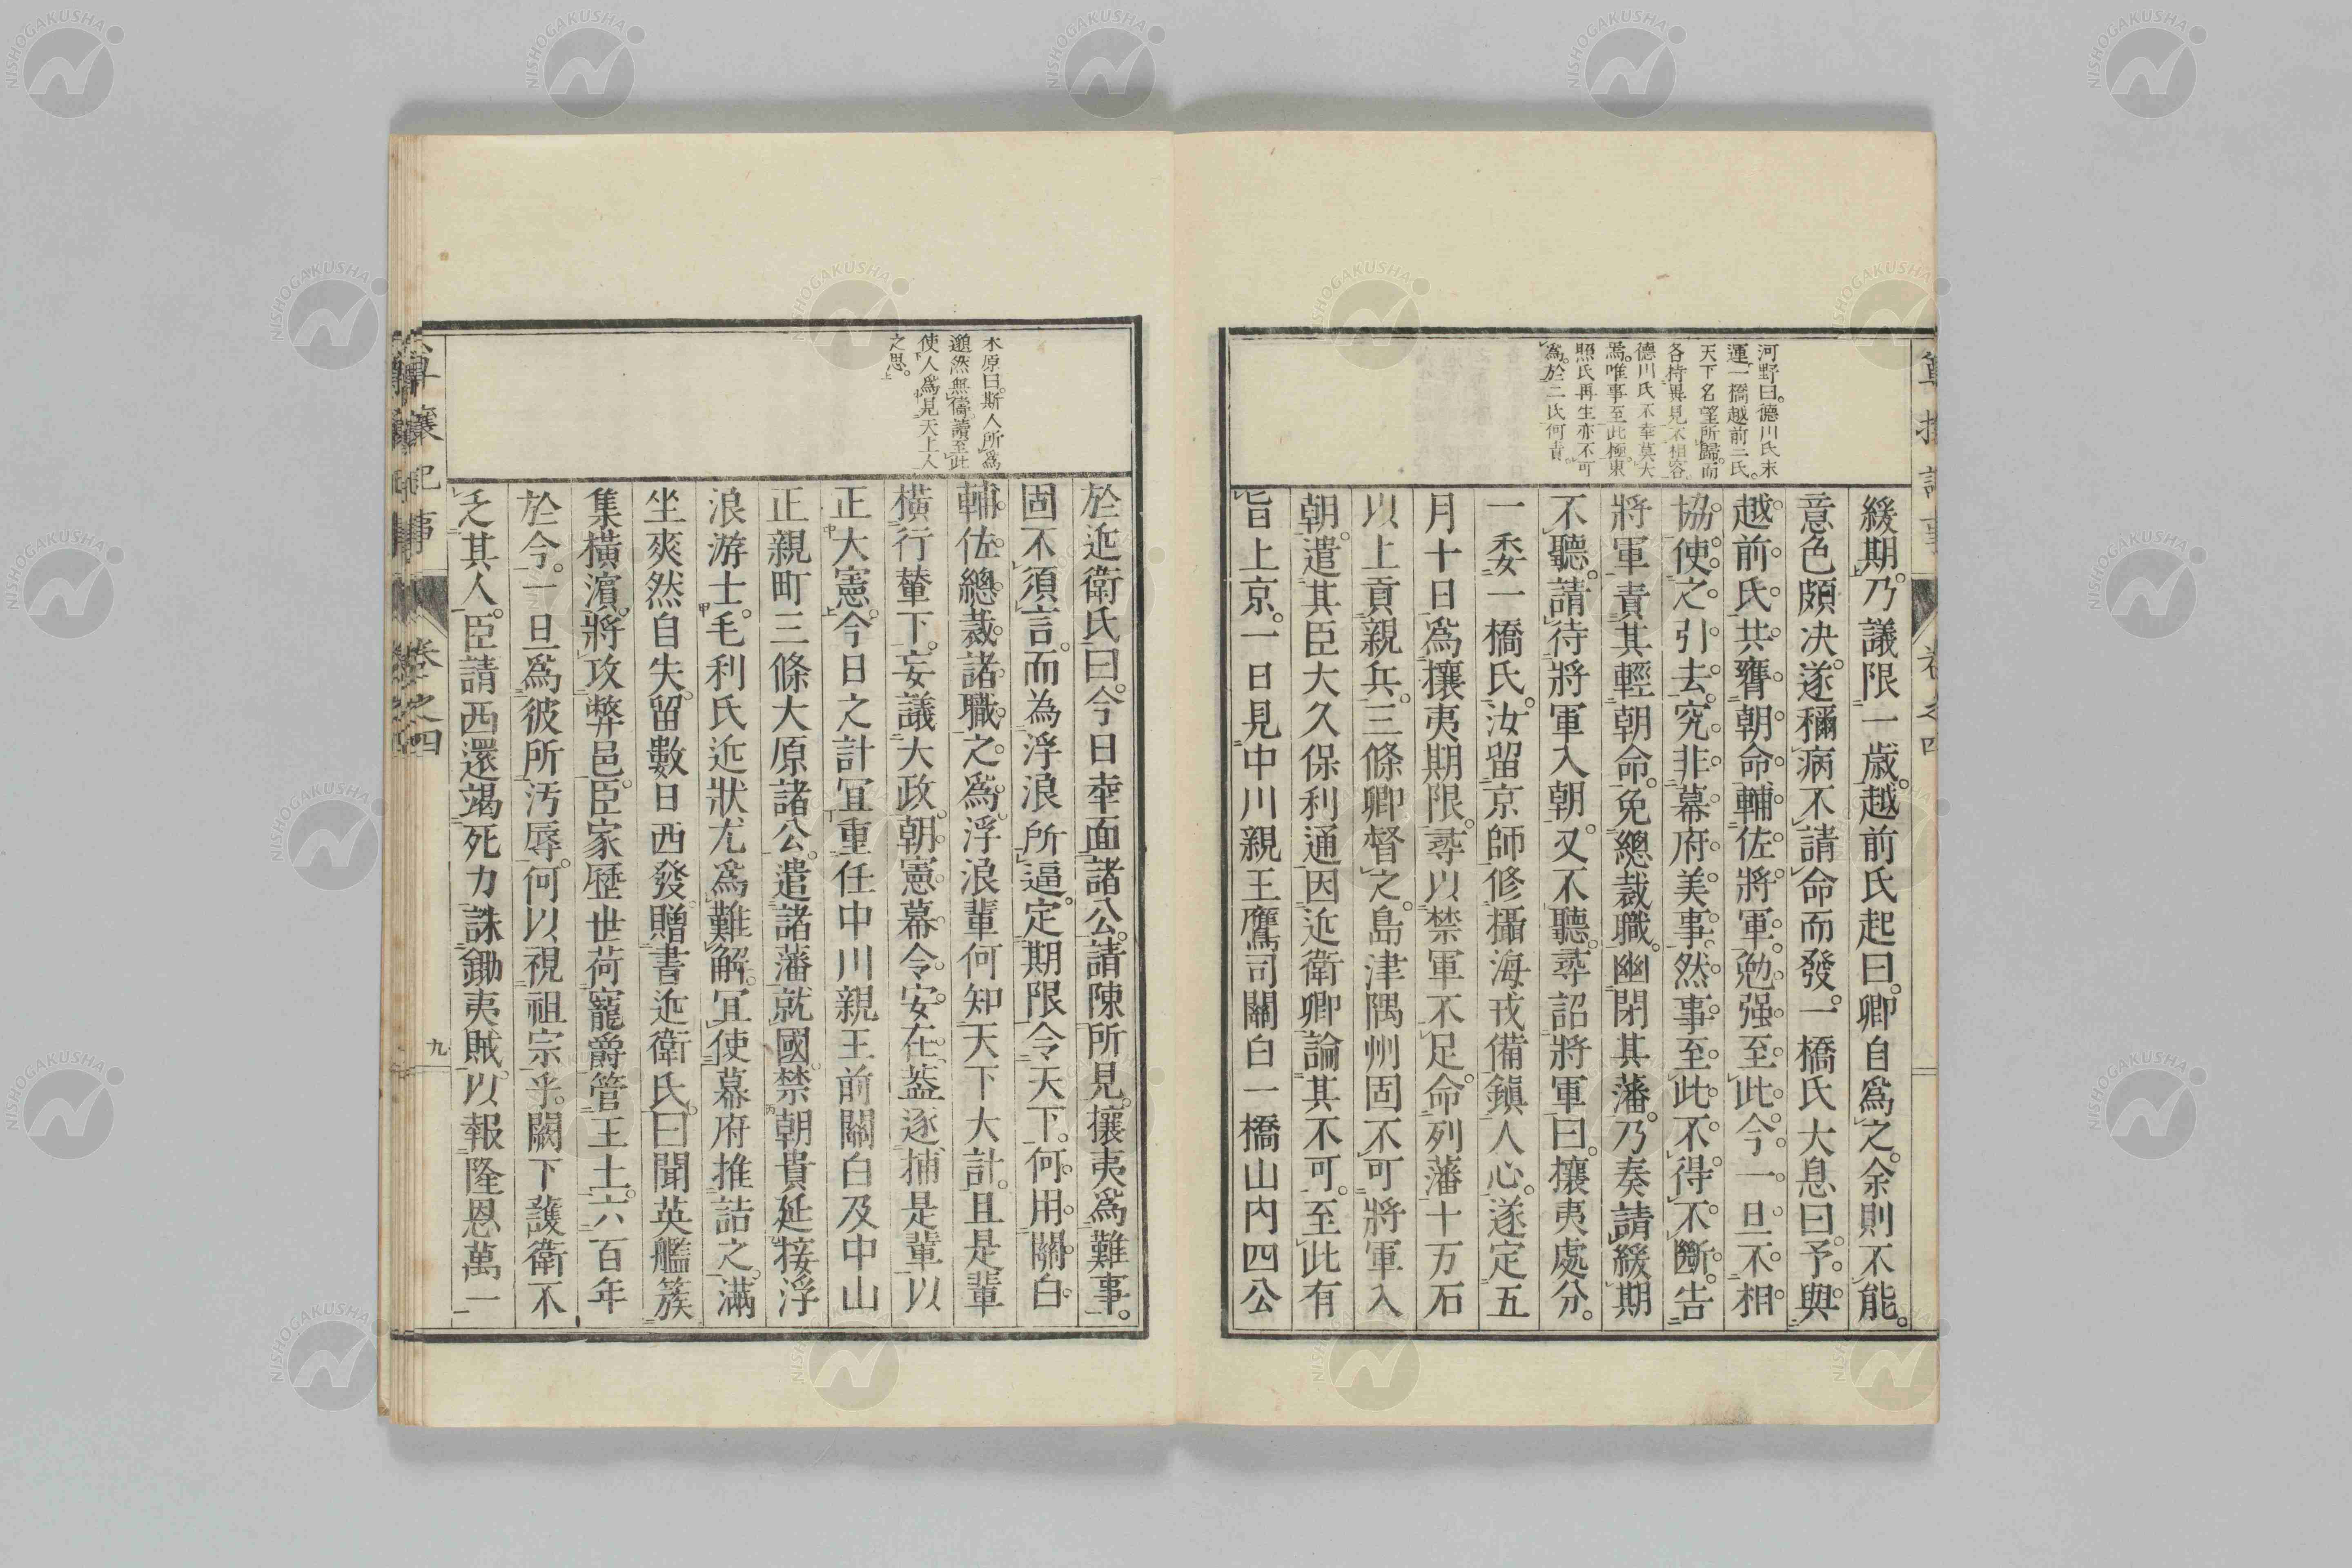 河野曰。德川氏末
運一橋越前二氏。
天下名望所歸。而
各持異見不相容。
德川氏不幸莫大
焉。唯事至此極。東
照氏再生亦不可
爲。於二氏何責。
緩期。乃議限一歲。越前氏起曰。卿自爲之。余則不能。
意色頗决。遂稱病不請命而發。一橋氏大息曰。予與
越前氏共膺朝命輔佐將軍。勉强至此。今一旦不相
協。使之引去。究非幕府美事。然事至此。不得不斷。告
將軍責其輕朝命。免總裁職。幽閉其藩。乃奏請緩期
不聽。請待將軍入朝。又不聽。尋詔將軍曰。攘夷處分。
一委一橋氏。汝留京師修攝海戎備鎭人心。遂定五
月十日爲攘夷期限。尋以禁軍不足。命列藩十万石
以上貢親兵。三條卿督之。島津隅州固不可將軍入
朝。遣其臣大久保利通因近衛卿論其不可。至此有
旨上京。一日見中川親王鷹司關白一橋山内四公
木原曰。斯人所爲
遒然無儔。讀至此
使人爲見天上人
之思。
於近衛氏曰。今日幸面諸公。請陳所見。攘夷爲難事。
固不須言。而為浮浪所逼。定期限令天下。何用關白
輔佐總裁諸職之爲。浮浪輩何知天下大計。且是輩
横行輦下。妄議大政。朝憲幕令安在。葢逐捕是輩以
正大憲。今日之計宜重任中川親王前關白及中山
正親町三條大原諸公。遣諸藩就國。禁朝貴延接浮
浪游士。毛利氏近狀尤爲難解。宜使幕府推詰之。滿
坐爽然自失。留數日西發。贈書近衛氏曰。聞英艦簇
集横濱。將攻弊邑。臣家歷世荷寵爵管王土。六百年
於今。一旦爲彼所汚辱。何以視祖宗乎。闕下護衛不
乏其人。臣請西還竭死力誅鋤夷賊。以報隆恩萬一
尊攘記事
卷之四
九